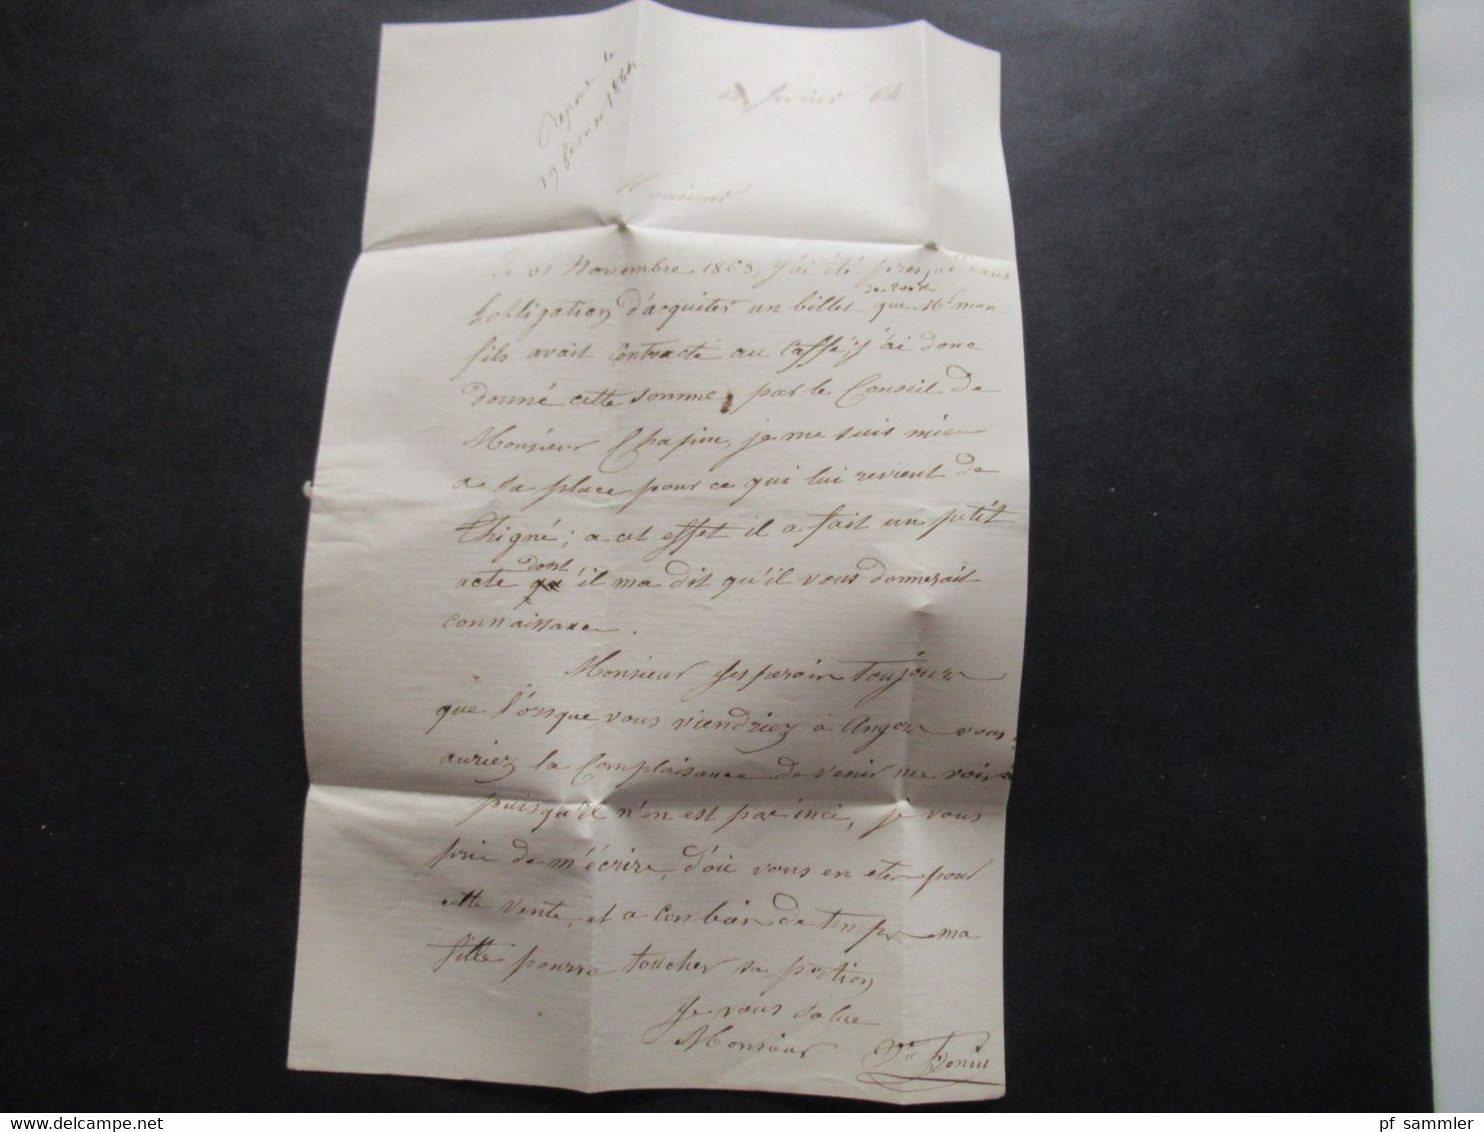 Réponse le
19 février 1864
février 64
Monsieur
Le 21 Novembre 1863, j'ai été presque dans
l'obligation d'acquiter un billet que Mr mon
fils avait contracté au Caffé; j'ai donc
donné cette somme, par le Conseil de
Monsieur Chapin, je me suis mis
a sa place pour ce qui lui revient de
Thigné; a cet effet il a fait un petit
dont
acte il ma dit qu'il vous donnerait
connaissance.
Monsieur j'esperois toujours
que l'orsque vous viendriez à Angers vous
auriez la Complaisance de venir me voir
puisqu'il n'en est pas inci, je vous
prie de m'écrire, d'où vous en etes pour
cette vente, et a con bien de temps ma
fille pourra toucher sa portion
Je vous salue
Monsieur Ve
pf sammler